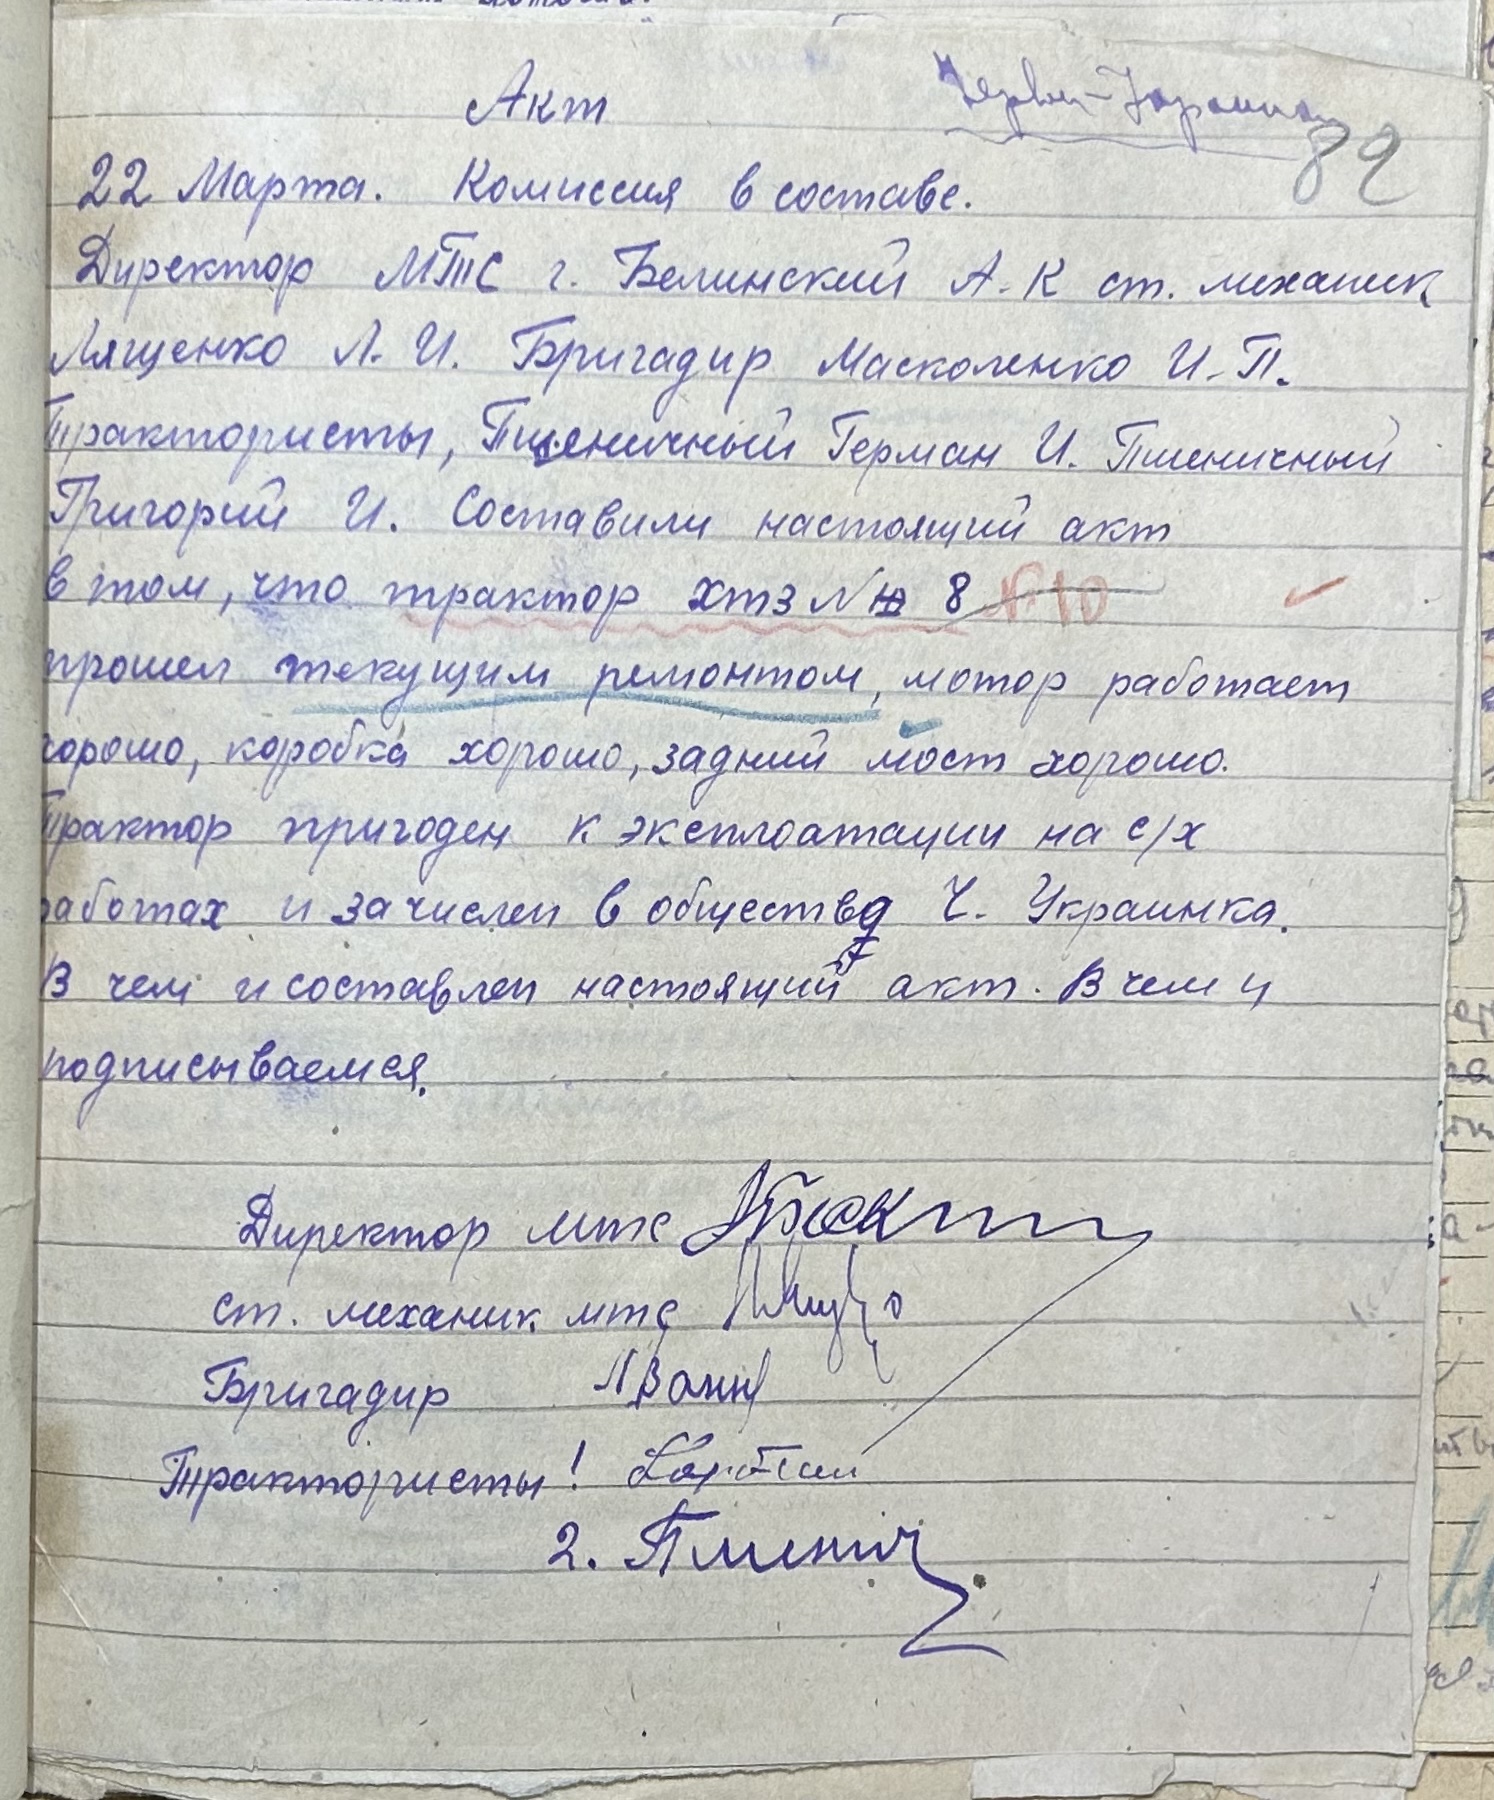 Акт
82
22 Марта. Комиссия в составе.
Директор МТС г. Белинский А. К ст. механик
Лященко Л. И. Бригадир Масколенко И. П.
Трактористы, Пшеничный Герман И. Пшеничный
Григорий И. Составили настоящий акт
в том, что трактор хтз № 8 №10
прошел текущим ремонтом, мотор работает
хорошо, коробка хорошо, задний мост хорошо.
Трактор пригоден к эксплоатации на с/х
работах и зачислен в общество Ч. Украинка.
В чем и составлен настоящий акт. В чем и
подписываемся.
Директор мтс
ст. механик мтс
Бригадир
Трактористы!
2. Пшенич